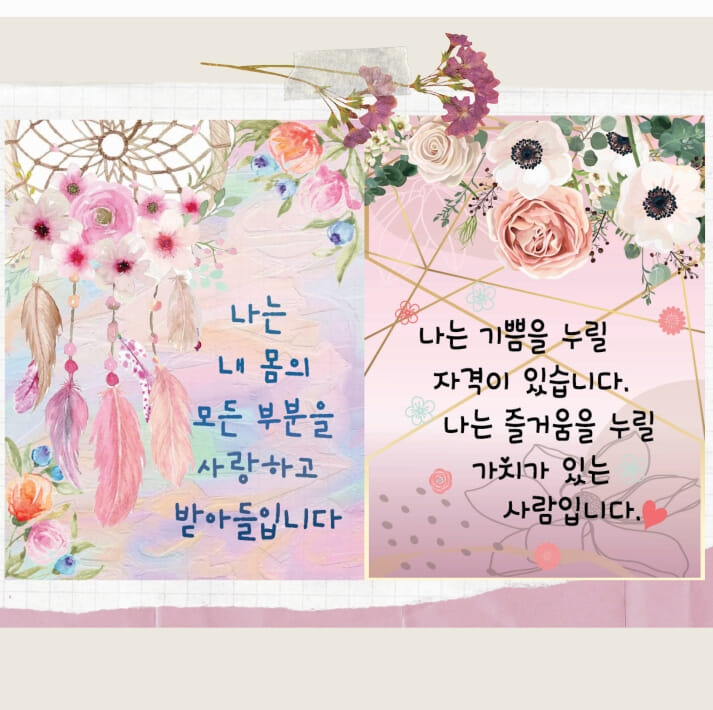 나는
내 몸의
모든 부분을
사랑하고
받아들입니다
나는 기쁨을 누릴
자격이 있습니다.
나는 즐거움을 누릴
가치가 있는
사람입니다.